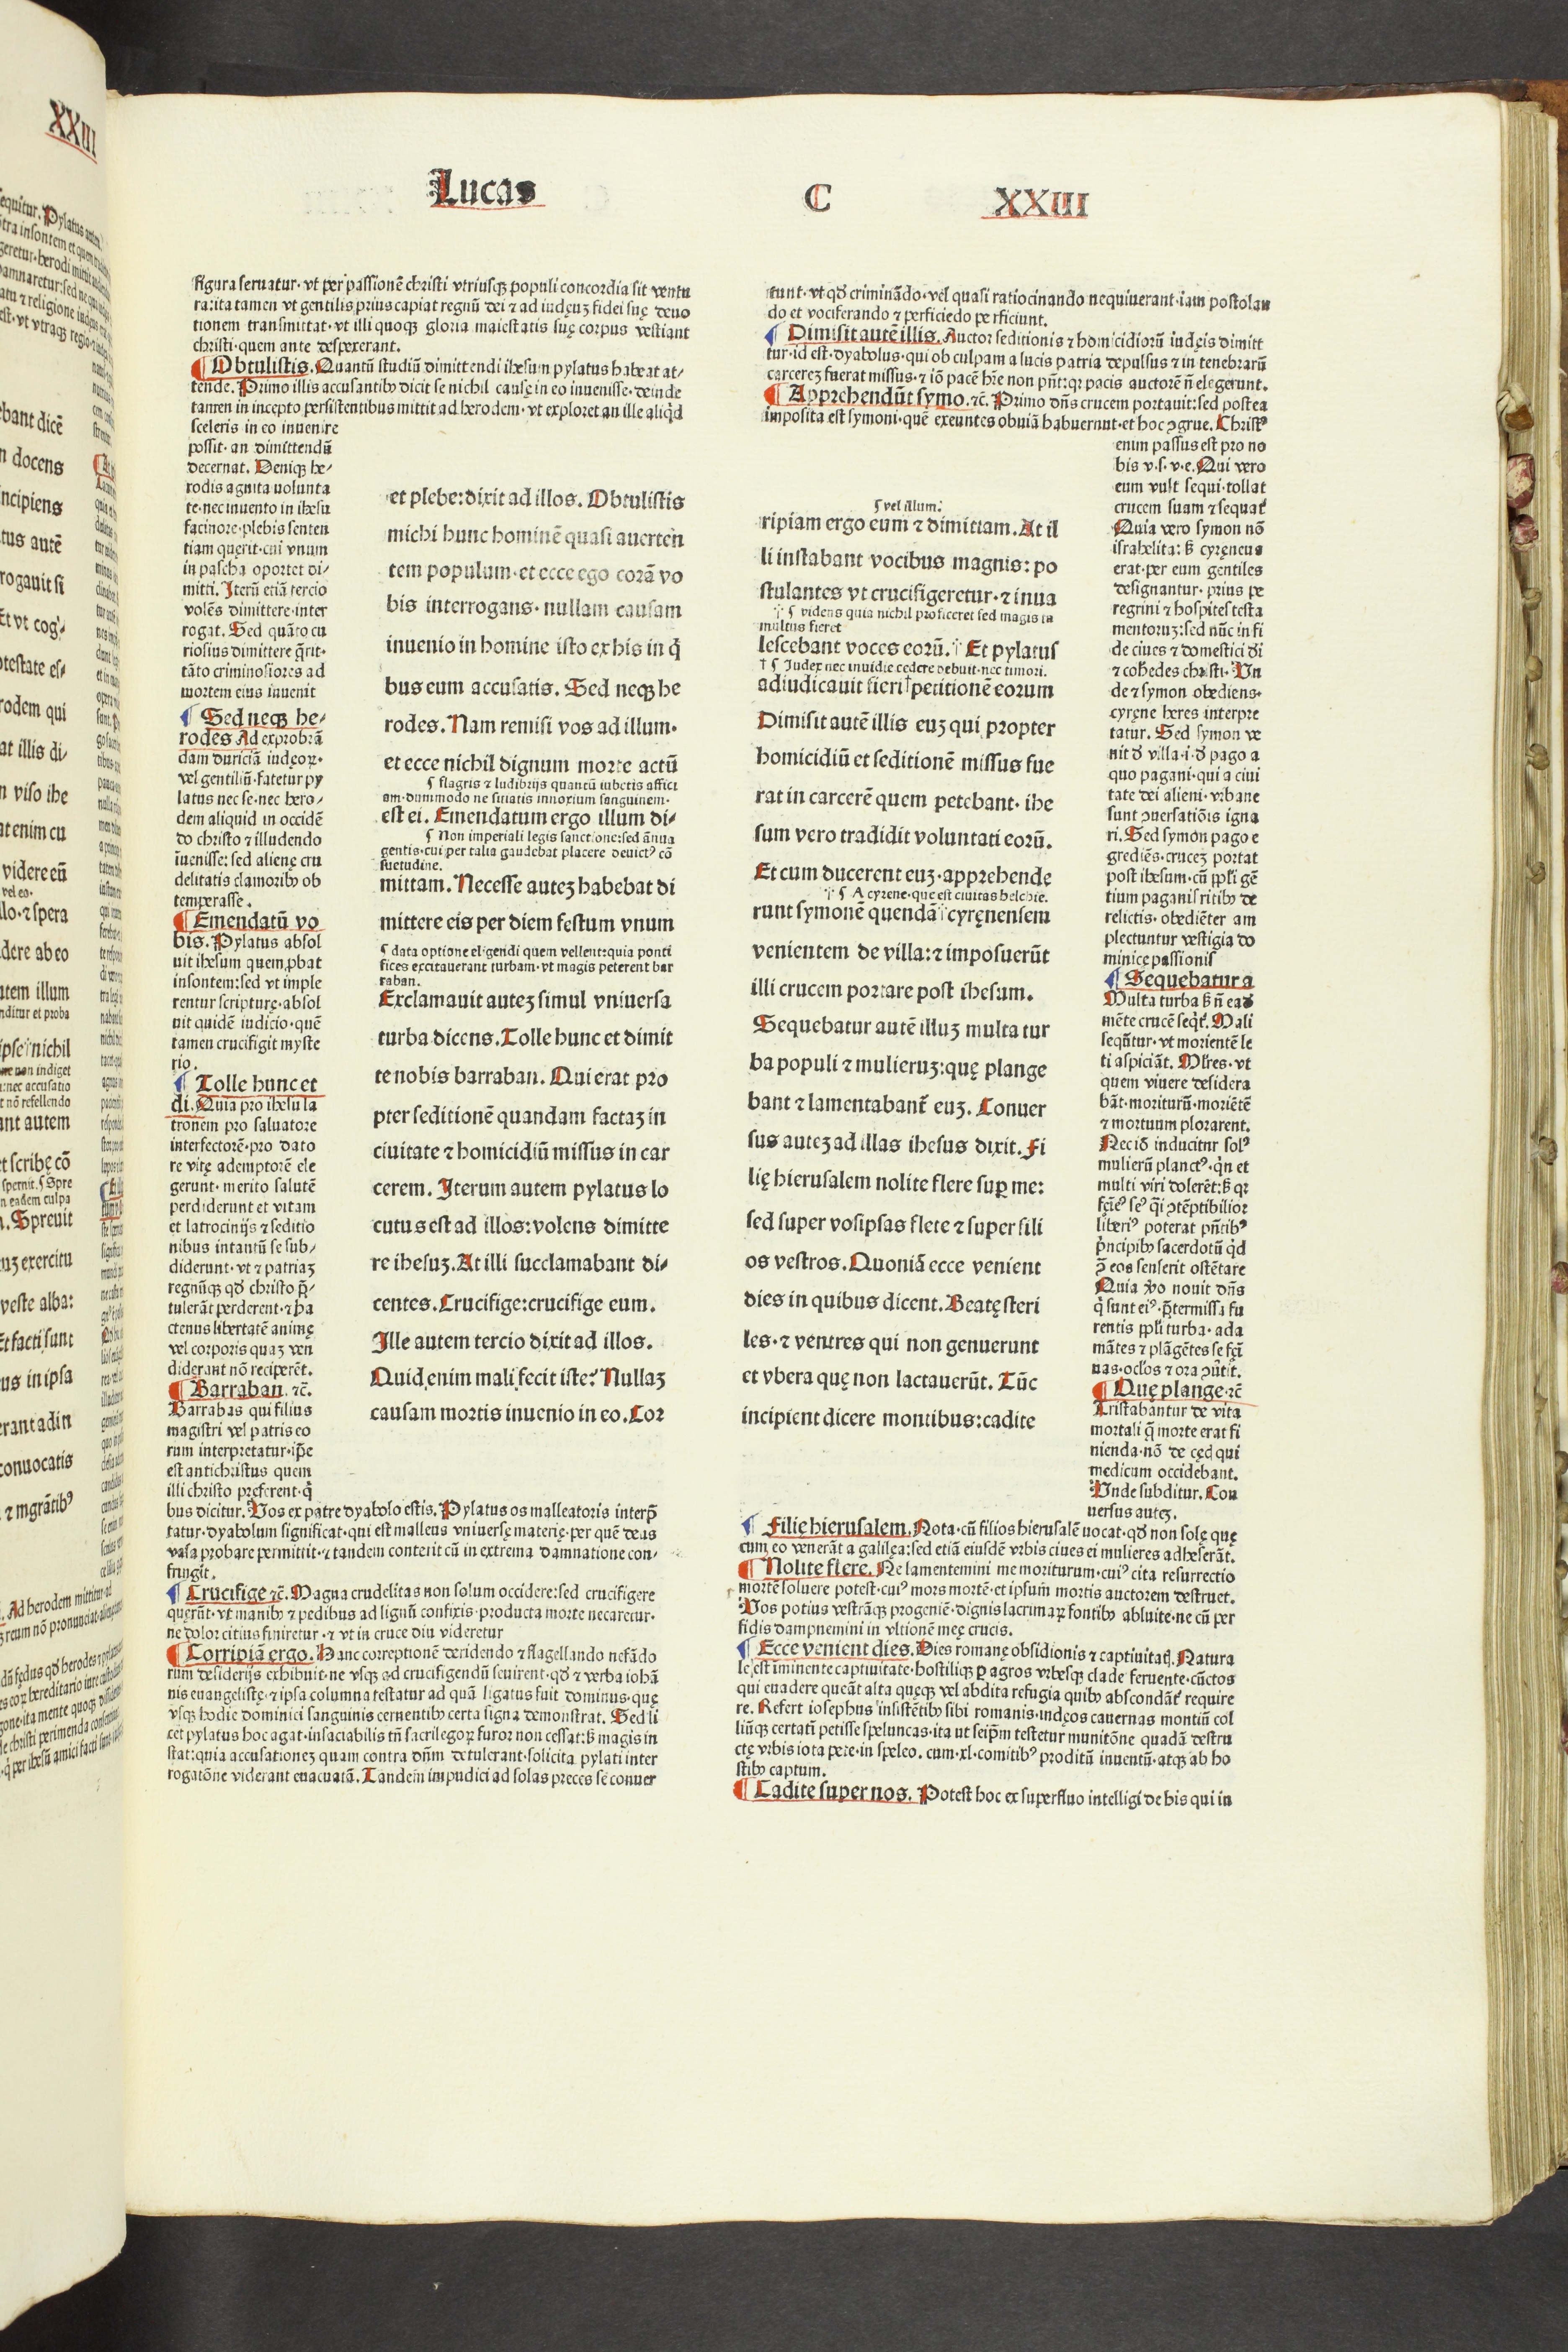 Lucas C XXIII
figura seruatur· vt per passionē christi vtriusqꝫ populi concordia sit ventu
ra:ita tamen vt gentilis prius capiat regnū dei ⁊ ad iudęuꝫ fidei suę deuo
tionem transmittat· vt illi quoqꝫ gloria maiestatis suę corpus vestiant
christi· quem ante despexerant.
¶ Obtulistis. Quantū studiū dimittendi ihesum pylatus habeat at⸗
tende. Primo illis accusantibꝰ dicit se nichil causę in eo inuenisse· deinde
tamen in incepto persistentibus mittit ad herodem· vt exploret an ille aliqd
sceleris in eo inuenire
possit· an dimittendū
decernat. Deniqꝫ he⸗
rodis agnita uolunta
te· nec inuento in ihesu
facinore· plebis senten
tiam querit· cui vnum
in pascha oportet di⸗
mitti. Iterū etiā tercio
volēs dimittere· inter
rogat. Sed quāto cu
riosius dimittere q̄rit·
tāto criminosiores ad
mortem eius inuenit
¶ Sed neqꝫ he⸗
rodes Ad exprobrā
dam duriciā iudęoꝝ·
vel gentiliū· fatetur py
latus nec se· nec hero⸗
dem aliquid in occidē
do christo ⁊ illudendo
inuenisse: sed alienę cru
delitatis clamoribꝰ ob
temperasse.
¶ Emendatū vo
bis. Pylatus absol
uit ihesum quem ꝓbat
insontem: sed vt imple
rentur scripturę· absol
uit quidē iudicio· quē
tamen crucifigit myste
rio.
¶ Tolle hunc et
di. Quia pro ihesu la
tronem pro saluatore
interfectorē· pro dato
re vitę ademptorē ele
gerunt· merito salutē
perdiderunt et vitam
et latrocinijs ⁊ seditio
nibus intantū se sub⸗
diderunt· vt ⁊ patriaꝫ
regnūqꝫ qđ christo p̄⸗
tulerāt perderent· ⁊ ha
ctenus libertatē animę
vel corporis quaꝫ ven
diderant nō reciperēt.
¶ Barraban. ⁊c̄.
Barrabas qui filius
magistri vel patris eo
rum interpretatur· ip̄e
est antichristus quem
illi christo preferent· q̄
bus dicitur. Vos ex patre dyabolo estis. Pylatus os malleatoris interp̄
tatur· dyabolum significat· qui est malleus vniuersę materię· per quē deus
vasa probare permittit· ⁊ tandem conterit eū in extrema damnatione con⸗
fringit.
¶ Crucifige ⁊c̄. Magna crudelitas non solum occidere: sed crucifigere
quęrūt· vt manibꝰ ⁊ pedibus ad lignū confixis· producta morte necaretur·
ne dolor citius finiretur· ⁊ vt in cruce diu videretur
¶ Corripiā ergo. Hanc correptionē deridendo ⁊ flagellando nefādo
rum desiderijs exhibuit· ne vsqꝫ ad crucifigendū seuirent· qđ ⁊ verba iohā
nis euangelistę· ⁊ ipsa columna testatur ad quā ligatus fuit dominus· quę
vsqꝫ hodie dominici sanguinis cernentibꝰ certa signa demonstrat. Sed li
cet pylatus hoc agat· insaciabilis tn̄ sacrilegoꝝ furor non cessat: ß magis in
stat: quia accusationeꝫ quam contra dn̄m detulerant· solicita pylati inter
rogatōne viderant euacuatā. Tandem impudici ad solas preces se conuer
et plebe: dixit ad illos. Obtulistis
michi hunc hominē quasi auerten
tem populum· et ecce ego corā vo
bis interrogans· nullam causam
inuenio in homine isto ex his in q̄
bus eum accusatis. Sed neqꝫ he
rodes. Nam remisi vos ad illum·
et ecce nichil dignum morte actū
¶ flagris ⁊ ludibrijs quantū iubetis affici
am· dummodo ne sitiatis innoxium sanguinem·
est ei. Emendatum ergo illum di⸗
¶ Non imperiali legis sanctione: sed ānua
gentis· cui per talia gaudebat placere deuictꝰ cō
suetudine.
mittam. Necesse auteꝫ habebat di
mittere eis per diem festum vnum
¶ data optione eligendi quem vellent: quia ponti
fices excitauerant turbam· vt magis peterent bar
raban.
Exclamauit auteꝫ simul vniuersa
turba dicens. Tolle hunc et dimit
te nobis barraban. Qui erat pro
pter seditionē quandam factaꝫ in
ciuitate ⁊ homicidiū missus in car
cerem. Iterum autem pylatus lo
cutus est ad illos: volens dimitte
re ihesuꝫ. At illi succlamabant di⸗
centes. Crucifige: crucifige eum.
Ille autem tercio dixit ad illos.
Quid enim mali fecit iste? Nullaꝫ
causam mortis inuenio in eo. Cor
tunt· vt qđ criminādo· vel quasi ratiocinando nequiuerant· iam postolan
do et vociferando ⁊ perficiedo perficiunt.
¶ Dimisit autē illis. Auctor seditionis ⁊ homicidiorū iudęis dimitt
tur· id est· dyabolus· qui ob culpam a lucis patria depulsus ⁊ in tenebrarū
carcereꝫ fuerat missus· ⁊ iō pacē hr̄e non pn̄t: qꝛ pacis auctorē n̄ elegerunt.
¶ Apprehendūt symo. ⁊c̄. Primo dn̄s crucem portauit: sed postea
imposita est symoni· quē exeuntes obuiā habuernut· et hoc ꝯgrue. Christꝰ
enim passus est pro no
bis v. s. v. e. Qui vero
eum vult sequi· tollat
crucem suam ⁊ sequat᷑
Quia vero symon nō
israhelita: ß cyręneus
erat· per eum gentiles
designantur· prius pe
regrini ⁊ hospites testa
mentoruꝫ: sed nūc in fi
de ciues ⁊ domestici dī
⁊ cohedes christi. Vn
de ⁊ symon obediens·
cyręne heres interpre
tatur. Sed symon ve
nit đ villa· i· đ pago a
quo pagani· qui a ciui
tate dei alieni· vrbane
sunt ꝯuersatiōis igna
ri. Sed symon pago e
grediēs· cruceꝫ portat
post ihesum· cū ppl̄i gē
tium paganis ritibꝰ de
relictis· obediēter am
plectuntur vestigia do
minicę passionis
¶ Sequebatur a
Multa turba ß n̄ eađ
mēte crucē seqt᷑. Mali
seqūtur· vt morientē le
ti aspiciāt. Mr̄es· vt
quem viuere desidera
bāt· moriturū· moriētē
⁊ mortuum plorarent.
Nec iō inducitur solꝰ
mulierū planctꝰ· qn̄ et
multi viri dolerēt: ß qꝛ
fęīeꝰ seꝰ q̄i ꝯtēptibilior
liberiꝰ poterat pn̄tibꝰ
pͥncipibꝰ sacerdotū qd
ꝯ̄ eos senserit ostētare
Quia v̊o nouit dn̄s
q̄ sunt eiꝰ· p̄termissa fu
rentis ppl̄i turba· ad a
mātes ⁊ plāgētes se fęī
nas· ocl̓os ⁊ ora ꝯu̓tit.
¶ Quę plange ⁊c̄
Tristabantur de vita
mortali q̄ morte erat fi
nienda· nō de cęđ qui
medicum occidebant.
Vnde subditur. Con
uersus auteꝫ.
¶ Filię hierusalem. Nota· cū filios hierusalē uocat· qđ non solę quę
cum eo venerāt a galilęa: sed etiā eiusdē vrbis ciues ei mulieres adheserāt.
¶ Nolite flere. Ne lamentemini me moriturum· cuiꝰ cita resurrectio
mortē soluere potest· cuiꝰ mors mortē· et ipsum mortis auctorem destruet.
Vos potius vestrāqꝫ progeniē· dignis lacrimaꝝ fontibꝰ abluite· ne cū per
fidis dampnemini in vltionē meę crucis.
¶ Ecce venient dies. Dies romanę obsidionis ⁊ captiuitatꝭ. Natura
le est iminente captiuitate· hostiliqꝫ ꝑ agros vrbesqꝫ clade feruente· cūctos
qui euadere queāt alta quęqꝫ vel abdita refugia quibꝰ abscondāt᷑ require
re. Refert iosephus insistētibꝰ sibi romanis· iudęos cauernas montiū col
liūqꝫ certatī petisse speluncas· ita ut seip̄m testetur munitōne quadā destru
ctę vrbis iotapete· in speleo. cum· xl· comitibꝰ proditū inuentū· atqꝫ ab ho
stibꝰ captum.
¶ Cadite super nos. Potest hoc ex superfluo intelligi de his qui in
¶ vel illum.
ripiam ergo eum ⁊ dimittam. At il
li instabant vocibus magnis: po
stulantes vt crucifigeretur· ⁊ inua
¶ videns quia nichil proficeret sed magis tu
multus fieret
lescebant voces eorū. Et pylatus
† ¶ Iudex nec inuidie cedere debuit· nec timori.
adiudicauit fieri † petitionē eorum
Dimisit autē illis euꝫ qui propter
homicidiū et seditionē missus fue
rat in carcerē quem petebant· ihe
sum vero tradidit voluntati eorū.
Et cum ducerent euꝫ· apprehende
¶ A cyrene· que est ciuitas belchie.
runt symonē quendā cyręnensem
venientem de villa: ⁊ imposuerūt
illi crucem portare post ihesum.
Sequebatur autē illuꝫ multa tur
ba populi ⁊ mulieruꝫ: quę plange
bant ⁊ lamentabant᷑ euꝫ. Conuer
sus auteꝫ ad illas ihesus dixit. Fi
lię hierusalem nolite flere suꝑ me:
sed super vosipsas flete ⁊ super fili
os vestros. Quoniā ecce venient
dies in quibus dicent. Beatę steri
les· ⁊ ventres qui non genuerunt
et vbera quę non lactauerūt. Tūc
incipient dicere montibus: cadite